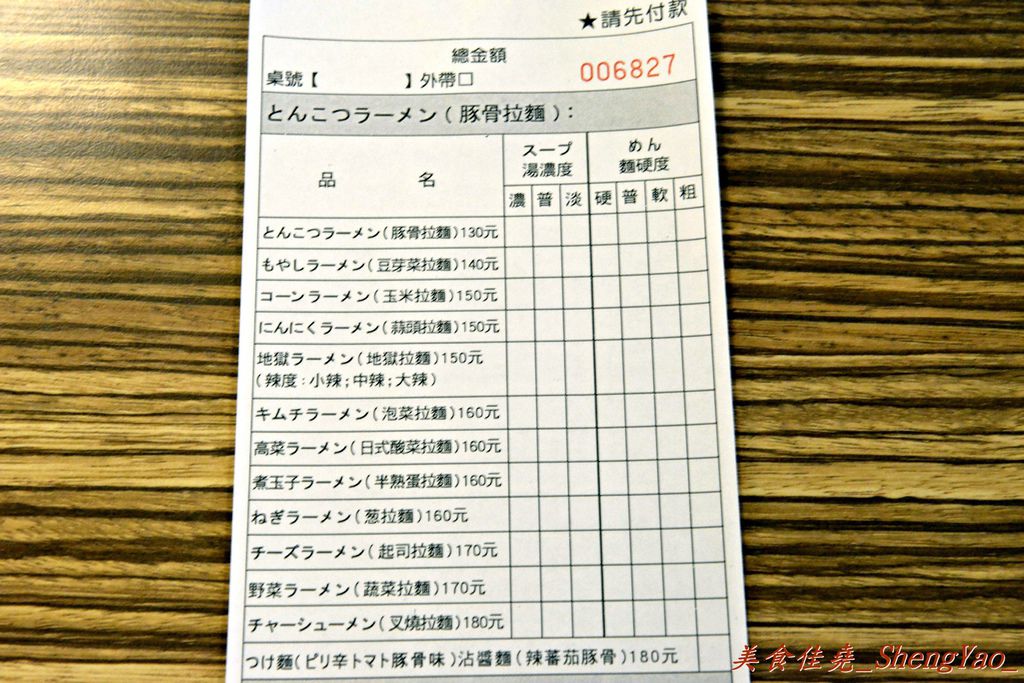 ★請先付款
總金額
桌號【 】外帶□ 006827
とんこつラーメン(豚骨拉麵):
品 名
スープ
湯濃度
めん
麵硬度
濃 普 淡 硬 普 軟 粗
とんこつラーメン(豚骨拉麵)130元
もやしラーメン(豆芽菜拉麵)140元
コーンラーメン(玉米拉麵)150元
にんにくラーメン(蒜頭拉麵)150元
地獄ラーメン(地獄拉麵)150元
(辣度:小辣;中辣;大辣)
キムチラーメン(泡菜拉麵)160元
高菜ラーメン(日式酸菜拉麵)160元
煮玉子ラーメン(半熟蛋拉麵)160元
ねぎラーメン(葱拉麵)160元
チーズラーメン(起司拉麵)170元
野菜ラーメン(蔬菜拉麵)170元
チャーシューメン(叉燒拉麵)180元
つけ麵(ピリ辛トマト豚骨味)沾醬麵(辣蕃茄豚骨)180元
美食佳堯_ShengYao_